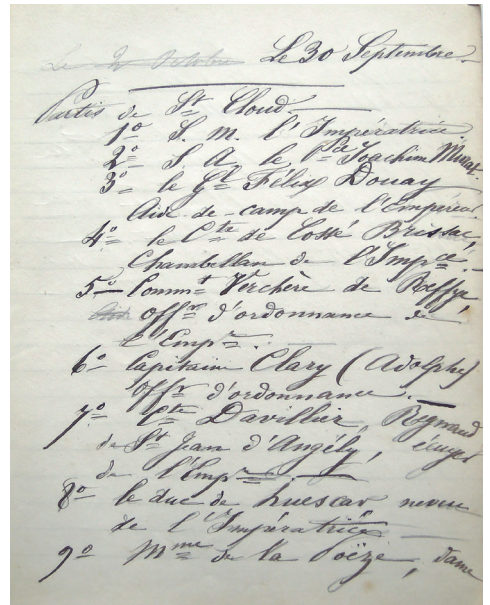 Le 30 Septembre
Partis de St Cloud
1° S. M. l'Impératrice
2° S A le Pce Joachim Murat
3° le Gl Félix Douay
Aide-de-camp de l'Empereur
4° le Cte de Cossé Brissac,
Chambellan de l'Impce
5° Commt Verchère de Reffye,
offr d'ordonnance de
l'Empr.
6° Capitaine Clary (Adolphe)
Offr d'ordonnance
7° Cte Davillier, Regnaud
de St Jean d'Angély, écuyer
de l'Empr
8° le duc de huescar neveu
de l'Impératrice
9° Mme de la Poëze, dame